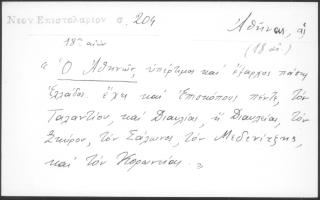 Νεον Επιστολαριον σ. 204
Ἀθήνας, ἁγ
18ος αἰών
(18 αἰ.)
« Ὁ Ἀθηνῶν, ὑπέρτιμος καὶ ἔξαρχος πάσης
Ἑλλάδος ἔχει καὶ Ἐπισκόπους πέντε, τὸν
Ταλαντίου, καὶ Διαυλίας, ἢ Δαυλείας, τὸν
Σκύρου, τὸν Σάλωνος, τὸν Μεδενίτζης,
καὶ τὸν Κορωνείας. »